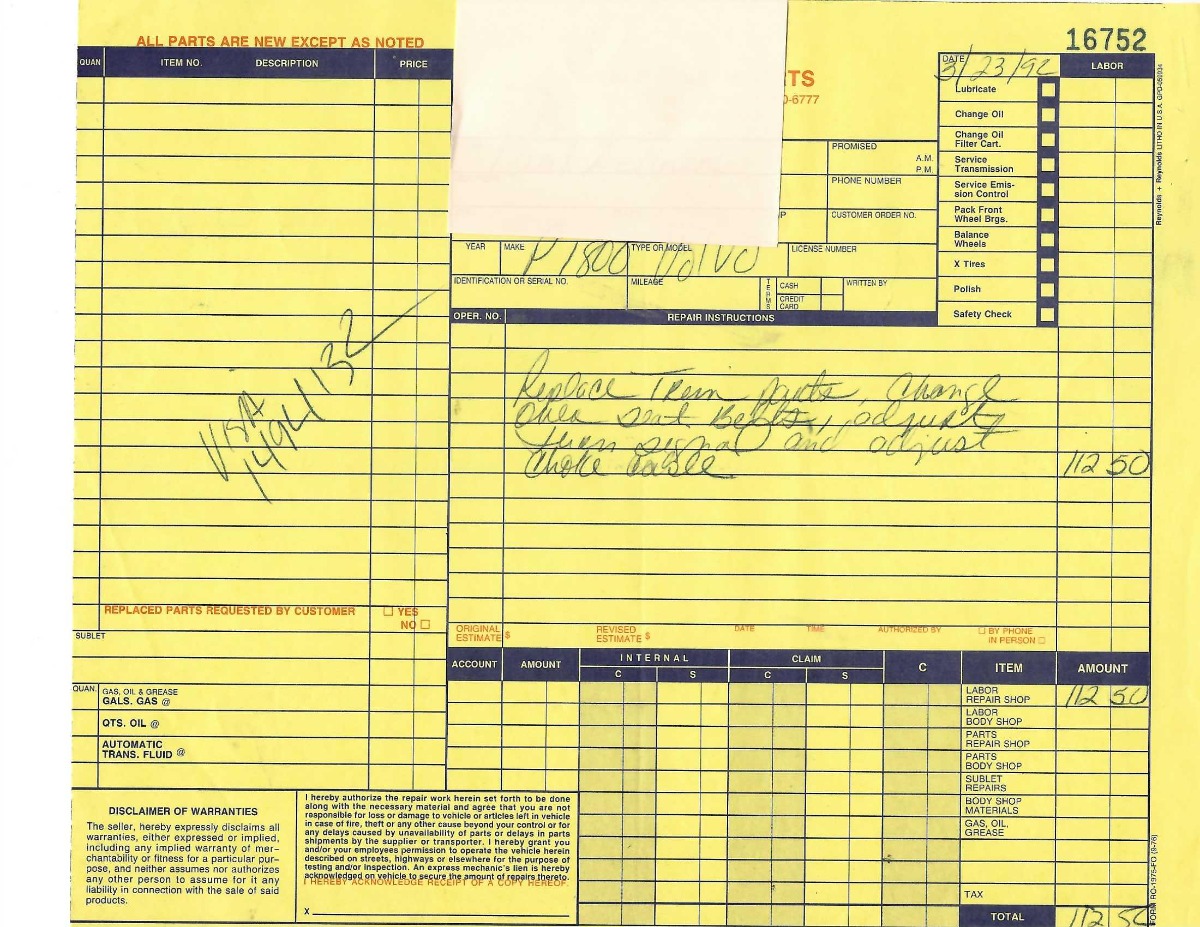 ALL PARTS ARE NEW EXCEPT AS NOTED
16752
QUAN ITEM NO. DESCRIPTION PRICE
RTS
0-6777
DATE 3/23/92
LABOR
Lubricate
Change Oil
Change Oil
Filter Cart.
Service
Transmission
Service Emis-
sion Control
Pack Front
Wheel Brgs.
Balance
Wheels
X Tires
Polish
Safety Check
PROMISED
A.M.
P.M.
PHONE NUMBER
CUSTOMER ORDER NO.
YEAR MAKE TYPE OR MODEL LICENSE NUMBER
P1800 Volvo
IDENTIFICATION OR SERIAL NO. MILEAGE TERMS CASH WRITTEN BY
CREDIT
CARD
OPER. NO. REPAIR INSTRUCTIONS
Replace Trem parts, Change
Over Seat Belts, adjust
turn signal and adjust
Choke Cable 112 50
VISA
1494132
REPLACED PARTS REQUESTED BY CUSTOMER YES
NO
SUBLET
ORIGINAL
ESTIMATE $
REVISED
ESTIMATE $
DATE TIME AUTHORIZED BY BY PHONE
IN PERSON
QUAN. GAS, OIL & GREASE
GALS. GAS @
QTS. OIL @
AUTOMATIC
TRANS. FLUID @
ACCOUNT AMOUNT INTERNAL CLAIM C ITEM AMOUNT
C S C S
LABOR
REPAIR SHOP 112 50
LABOR
BODY SHOP
PARTS
REPAIR SHOP
PARTS
BODY SHOP
SUBLET
REPAIRS
BODY SHOP
MATERIALS
GAS, OIL,
GREASE
TAX
TOTAL 112 50
DISCLAIMER OF WARRANTIES
The seller, hereby expressly disclaims all
warranties, either expressed or implied,
including any implied warranty of mer-
chantability or fitness for a particular pur-
pose, and neither assumes nor authorizes
any other person to assume for it any
liability in connection with the sale of said
products.
I hereby authorize the repair work herein set forth to be done
along with the necessary material and agree that you are not
responsible for loss or damage to vehicle or articles left in vehicle
in case of fire, theft or any other cause beyond your control or for
any delays caused by unavailability of parts or delays in parts
shipments by the supplier or transporter. I hereby grant you
and/or your employees permission to operate the vehicle herein
described on streets, highways or elsewhere for the purpose of
testing and/or inspection. An express mechanic's lien is hereby
acknowledged on vehicle to secure the amount of repairs thereto.
I HEREBY ACKNOWLEDGE RECEIPT OF A COPY HEREOF.
X
Reynolds + Reynolds LITHO IN U.S.A.
FORM RO-1975-FO (9-76)